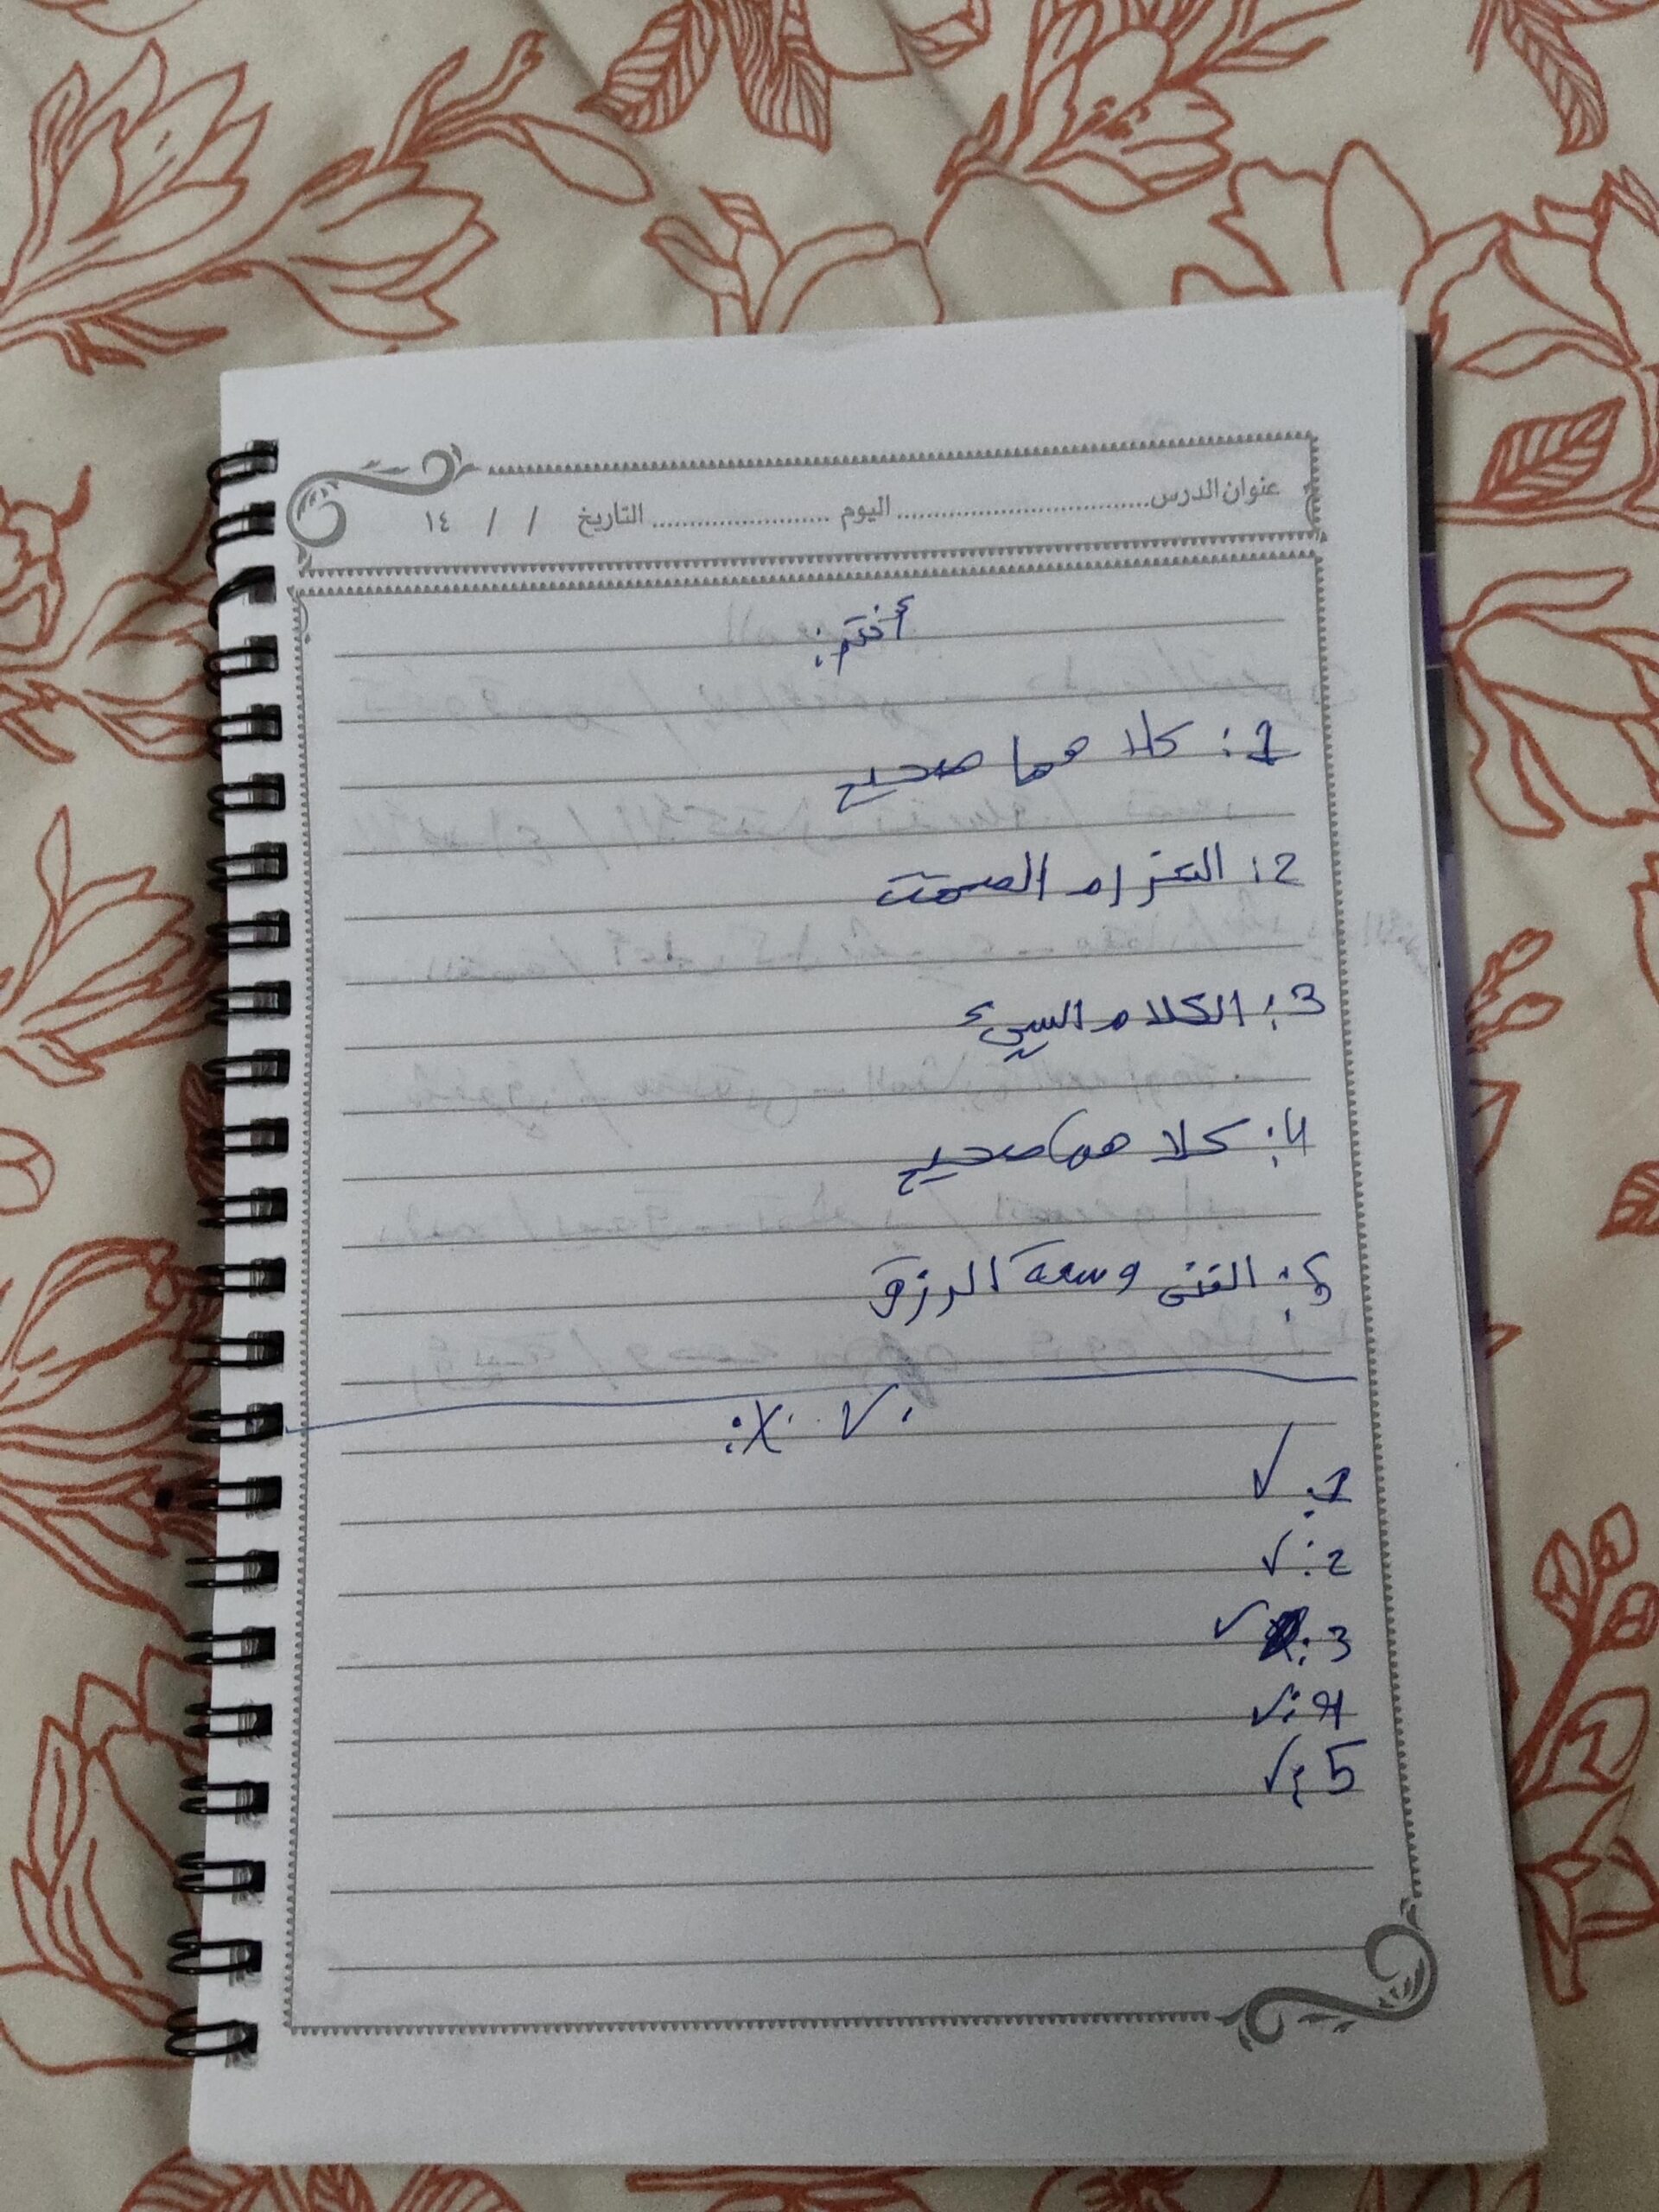 عنوان الدرس ................ اليوم ................ التاريخ / / ١٤
أختر:
1: كلا هما صحيح
2: التزام الصمت
3: الكلام السيئ
4: كلا هما صحيح
5: الغنى وسعة الرزق
✓ . X:
1: ✓
2: ✓
3: ✓
4: ✓
5: ✓